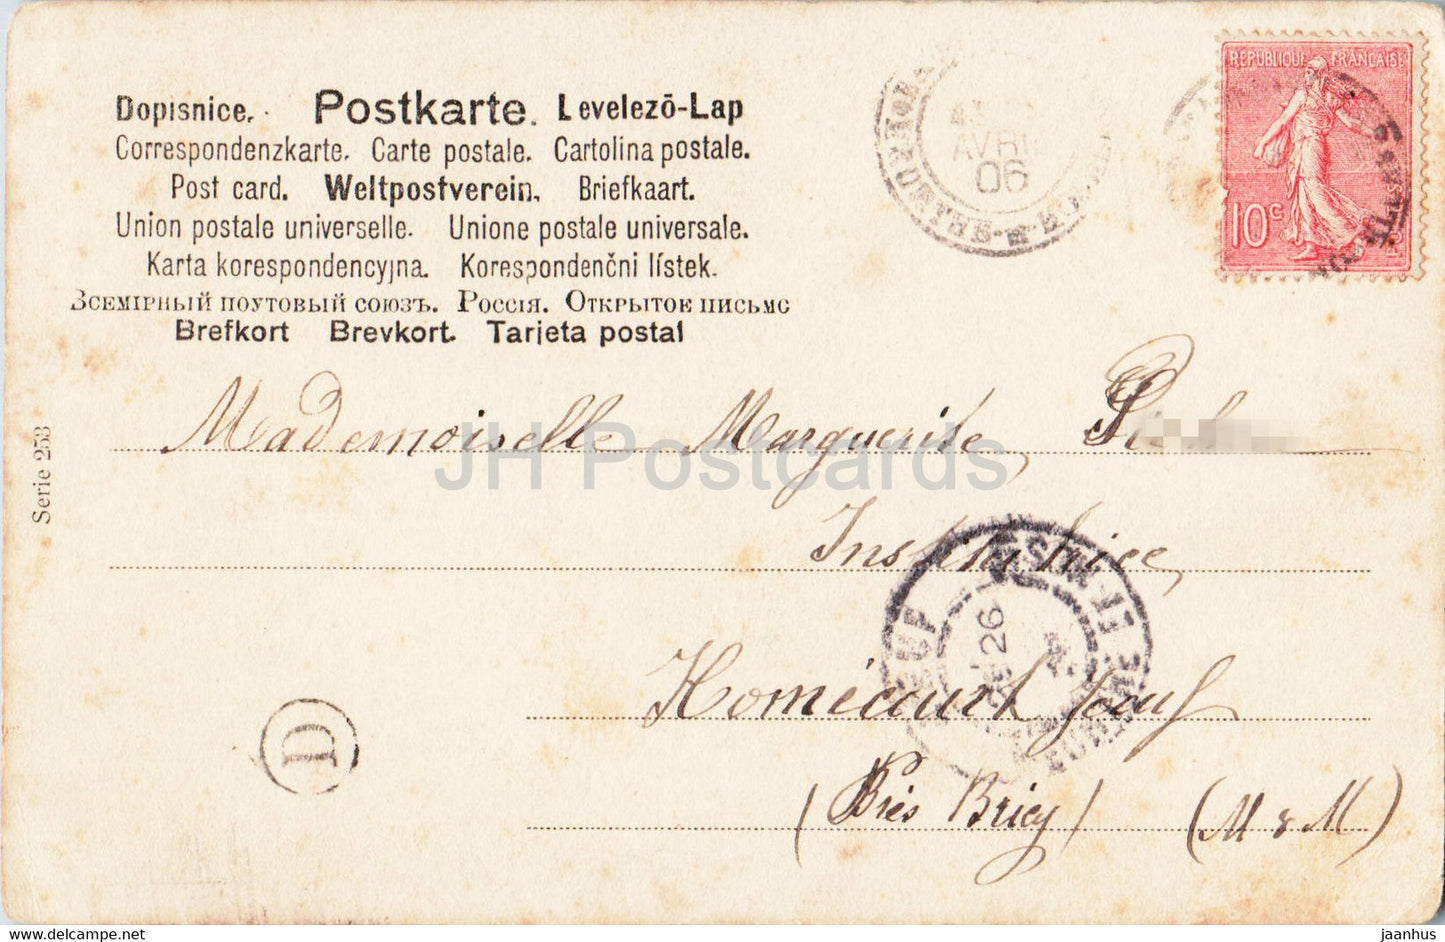 REPUBLIQUE FRANÇAISE
10c
AVRIL
06
Dopisnice. Postkarte. Levelezō-Lap
Correspondenzkarte. Carte postale. Cartolina postale.
Post card. Weltpostverein. Briefkaart.
Union postale universelle. Unione postale universale.
Karta korespondencyjna. Korespondenčni lístek.
Всемірный поутовый союзъ. Россія. Открытое письмо
Brefkort Brevkort. Tarjeta postal
Serie 253
Mademoiselle Marguerite
JH Postcards
Institutrice
26
Homécourt Joeuf
D
(Près Briey) (M & M)
www.delcampe.net
jaanhus